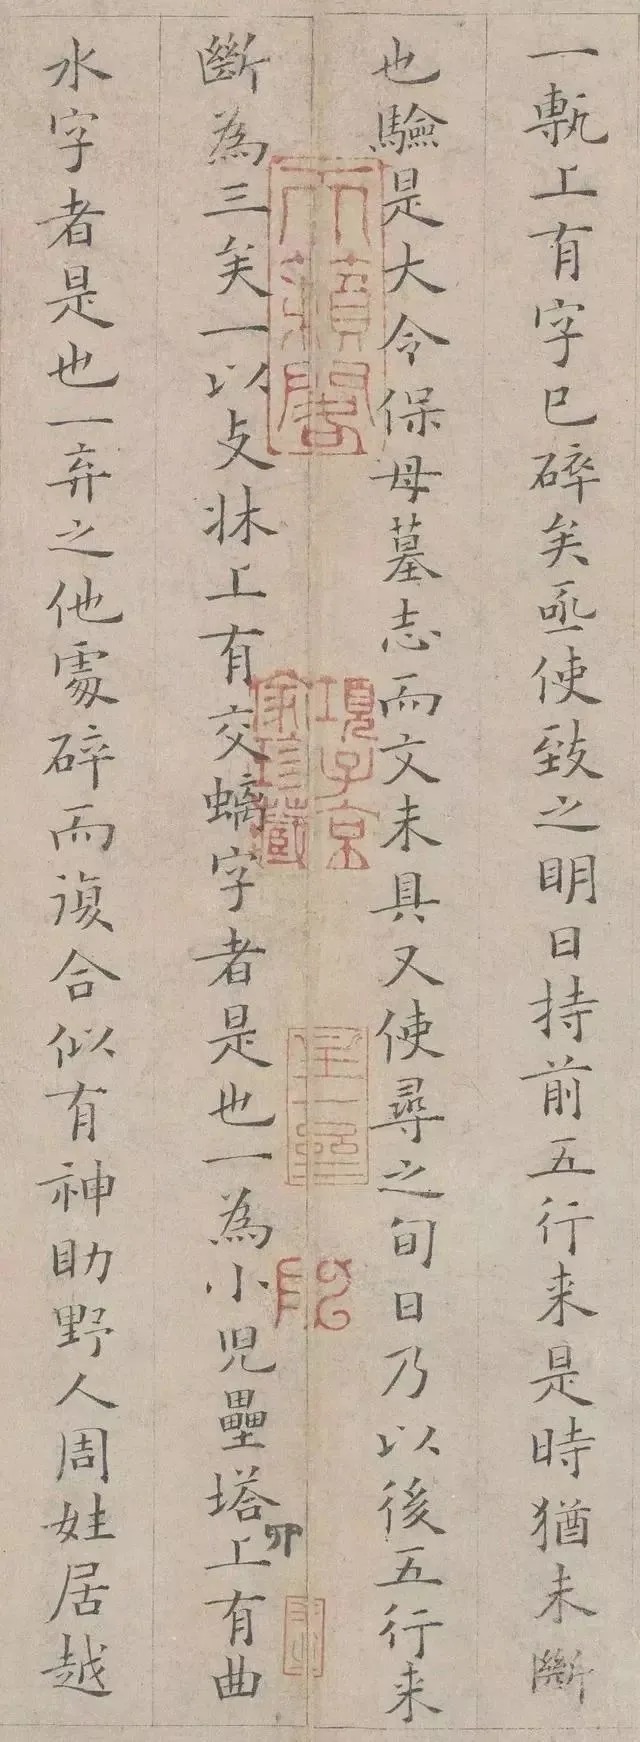 一甎上有字已碎矣亟使致之明日持前五行来是時猶未斷
也驗是大令保母墓志而文未具又使尋之旬日乃以後五行来
斷為三矣一以支牀上有交螭字者是也一為小兒壘塔上有曲
水字者是也一弃之他處碎而復合似有神助野人周姓居越
天籟閣
項子京
家珍藏
卯